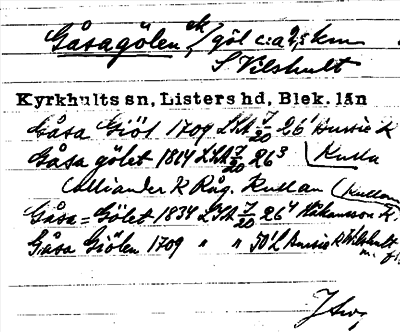 Gåsagölen göl c:a 2,5 km
S Vilshult
Kyrkhults sn, Listers hd, Blek. län
Gåsa Giöl 1709 LSA 7/20 26¹ Bussie K
Gåsa gölet 1814 LSA 7/20 26³
Colliander K Råg. Kullan
Gåsa=Gölet 1834 LSA 7/20 26⁴ Håkansson K.
Gåsa Giölen 1709 " " 50¹ Bussie K Vilshult